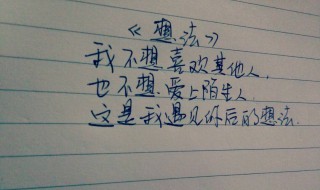 《想法》
我不想喜欢其他人，
也不想爱上陌生人
这是我遇见你后的想法.